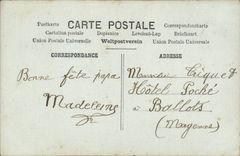 CARTE POSTALE
Postkarte Cartolina postale Postcard Dopisnice Weltpostverein Levelező-Lap Correspondenzkarte Briefkaart
Union Postale Universelle Weltpostverein Union Postale Universelle
CORRESPONDANCE
ADRESSE
Bonne fête papa
Madeleine
Monsieur Triquet
Hôtel Poché
à Ballots
(Mayenne)